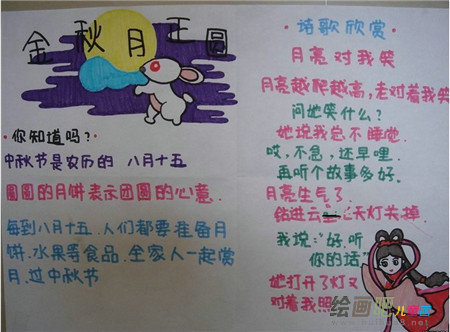 金秋月正圆
·你知道吗？·
中秋节是农历的 八月十五
圆圆的月饼表示团圆的心意.
每到八月十五.人们都要准备月
饼.水果等食品.全家人一起赏
月.过中秋节
·诗歌欣赏·
月亮对我笑
月亮越爬越高,老对着我笑
问她笑什么？
她说我总不睡他.
哎,不急,还早哩.
再听个故事多好.
月亮生气了.
钻进云 天灯关掉.
我说:"好.听
你的话"
她打开了灯又
对着我照
绘画吧